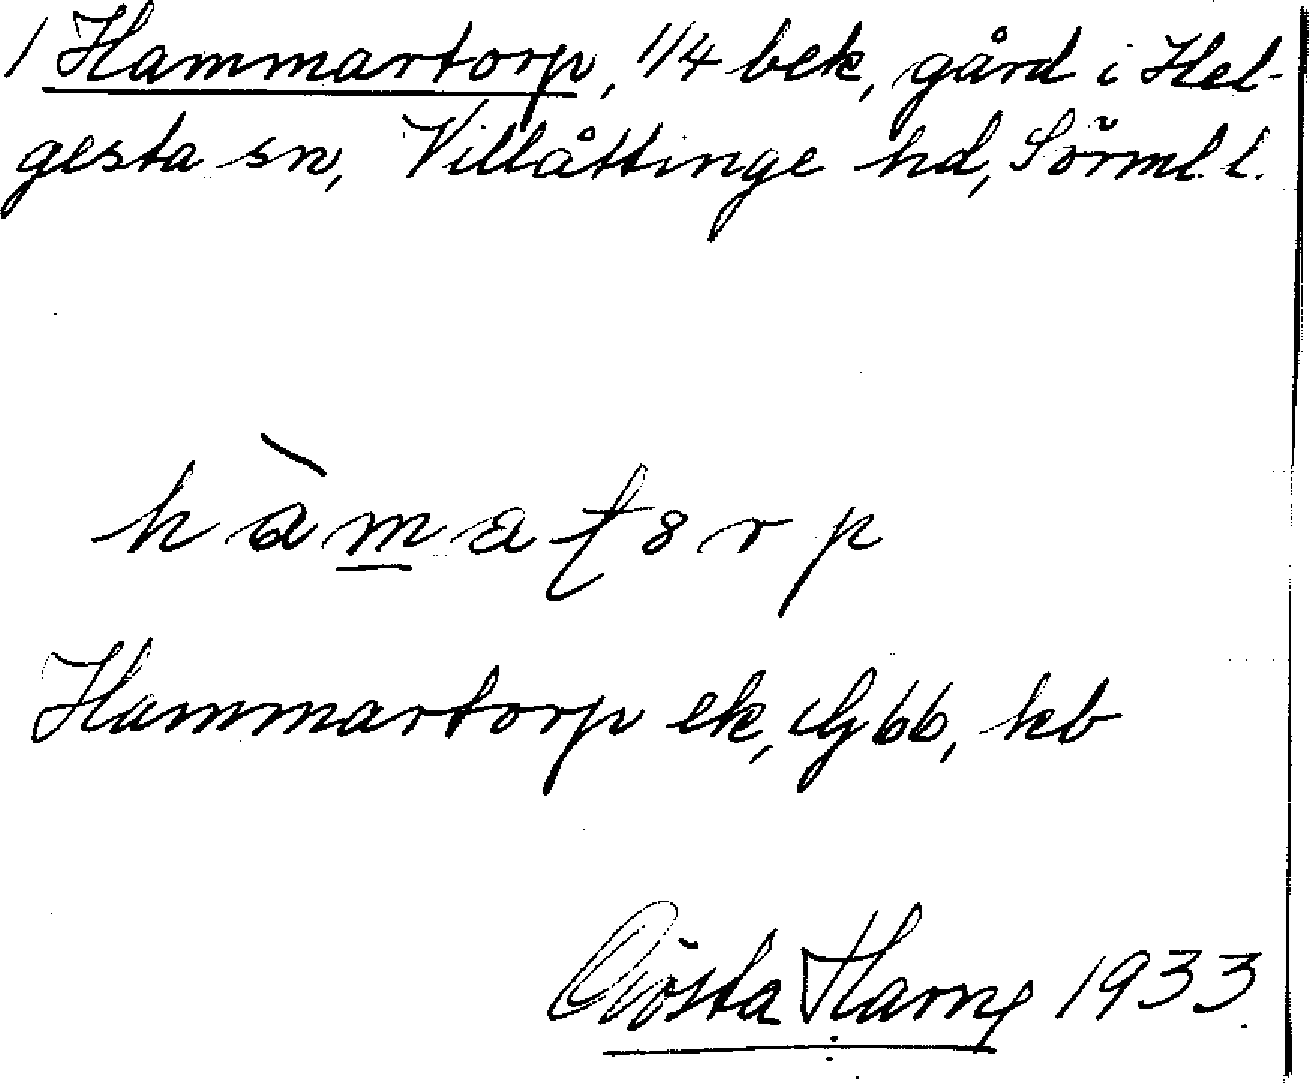 1 Hammartorp, 1/4 bek, gård i Hel-
gesta sn, Villåttinge hd, Sörml. l.
hàmatorp
Hammartorp ek, Gbb, kb
Gösta Harng 1933